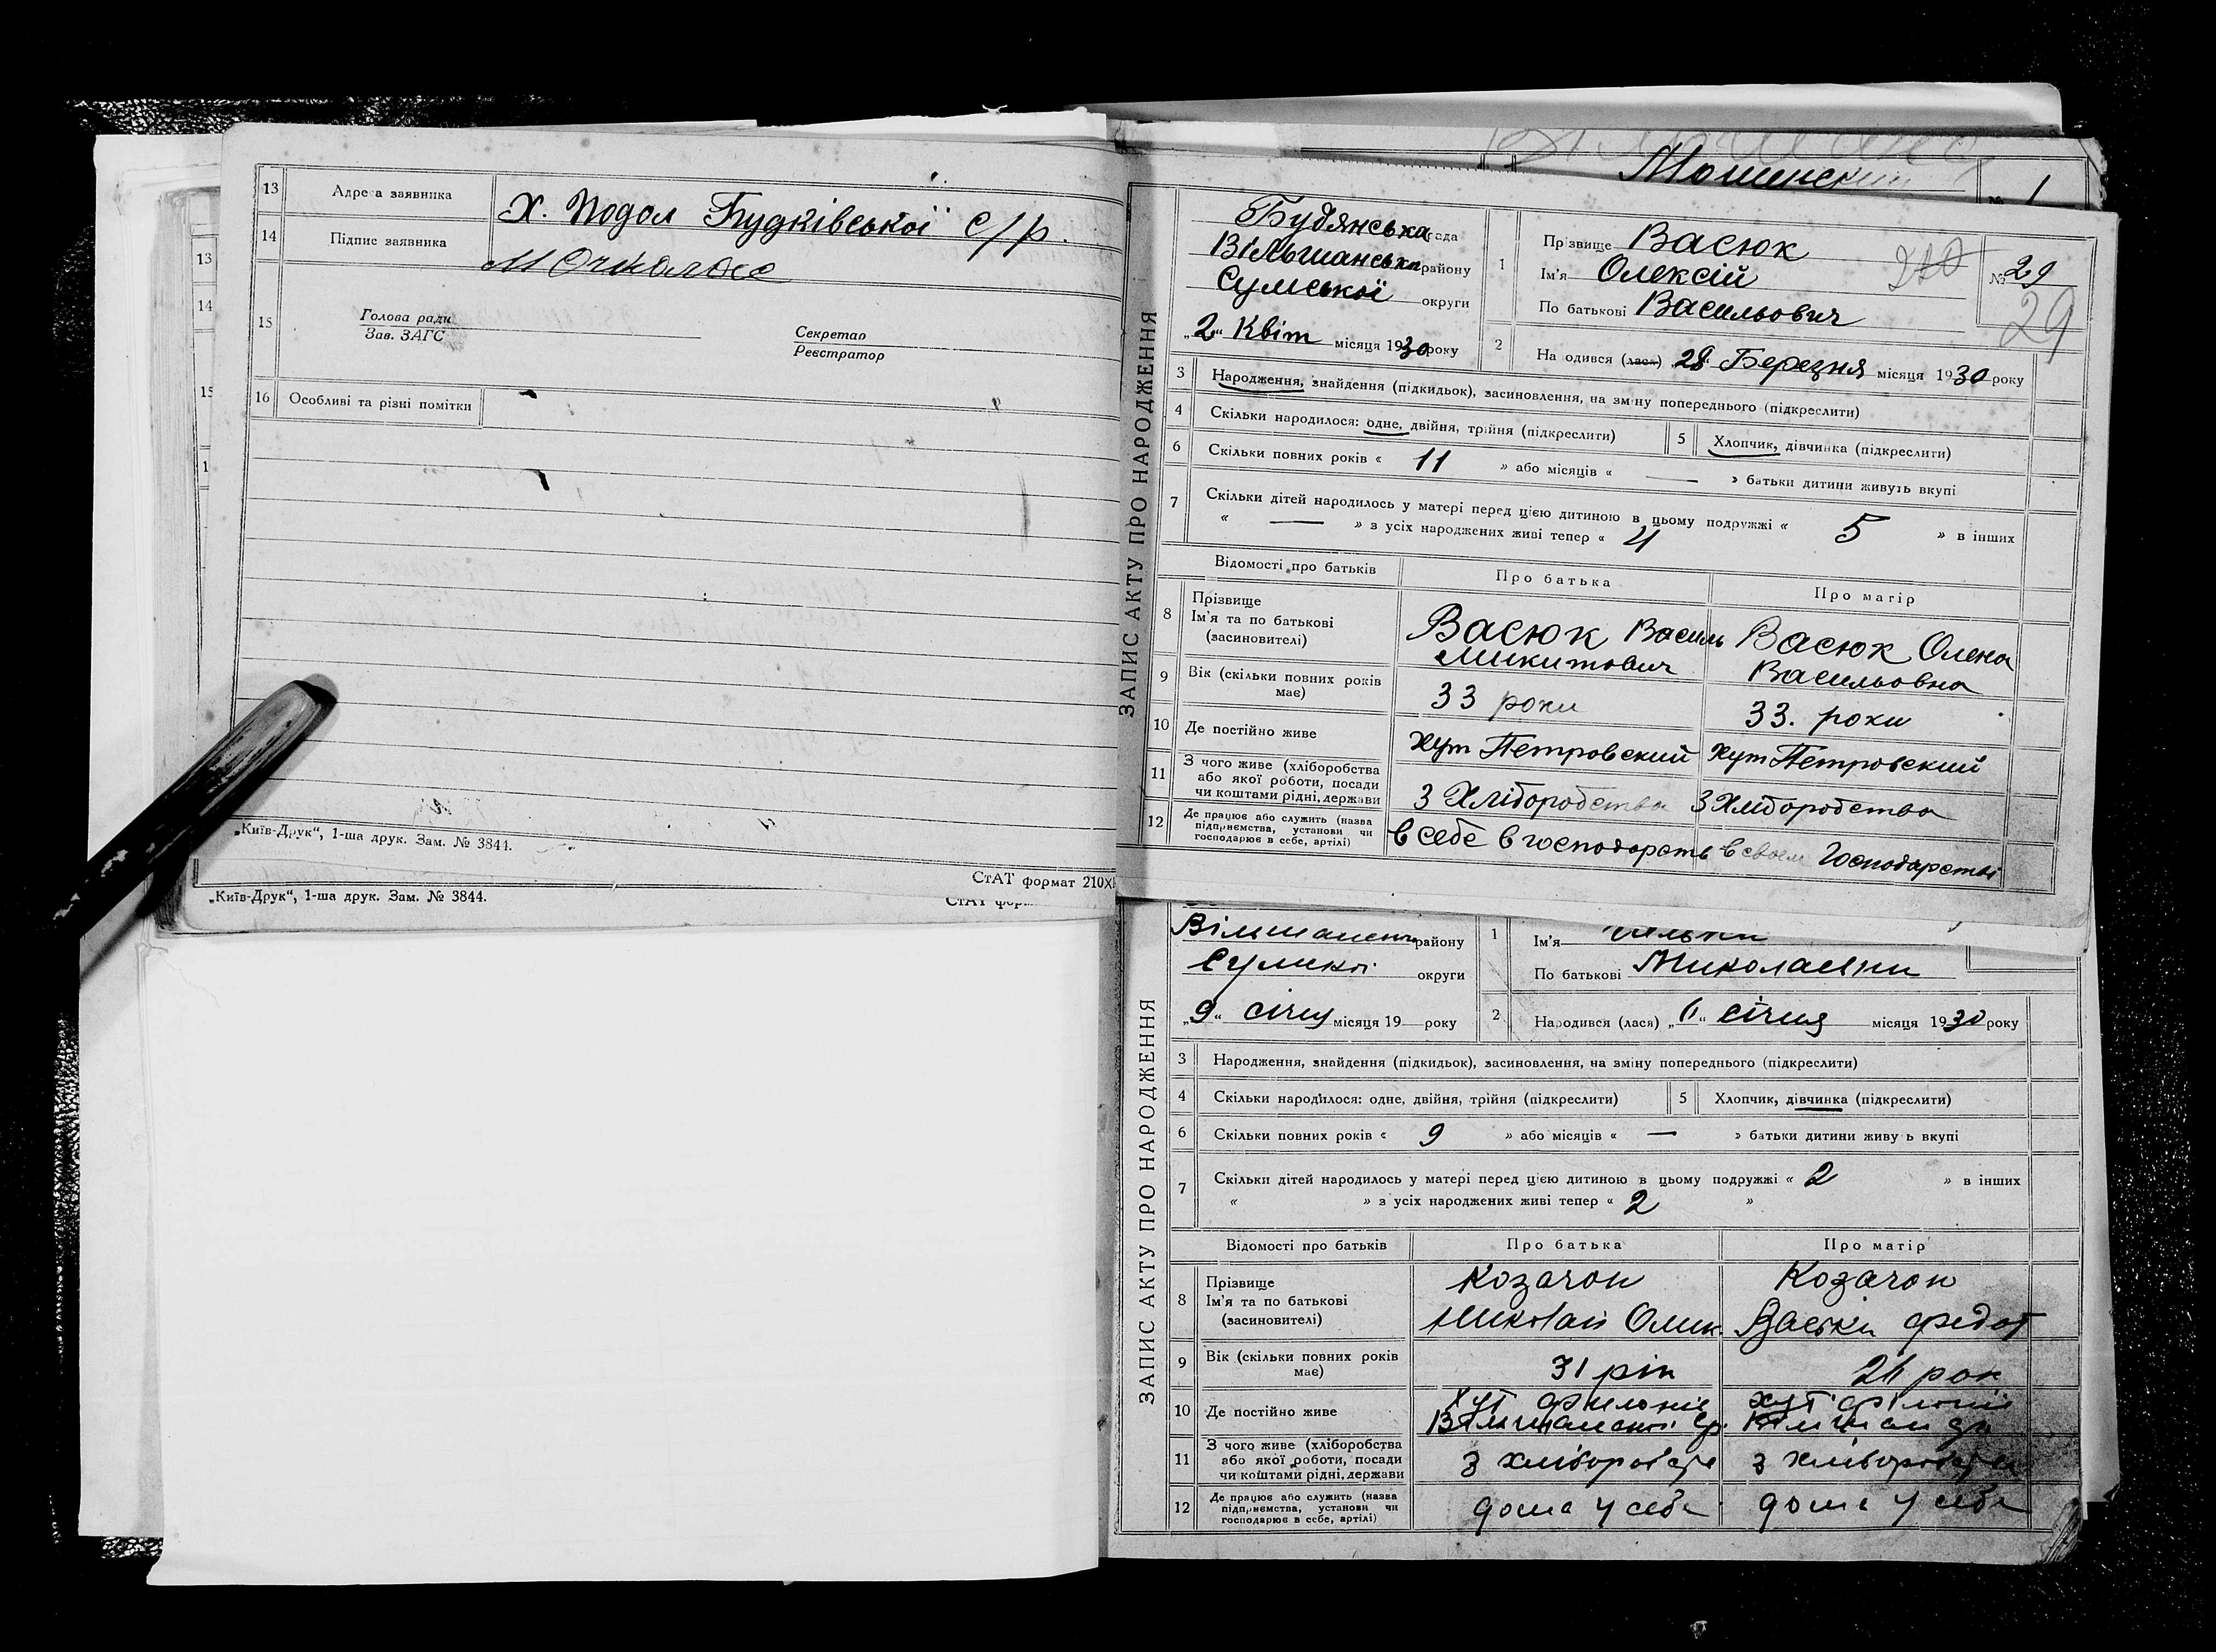 13 Адреса заявника Х. Подол Будківської с/р.
14 Підпис заявника
15 Голова ради
Зав. ЗАГС
Секретар
Реєстратор
16 Особливі та різні помітки
„Київ-Друк“, 1-ша друк. Зам. № 3844.
СтАТ формат 210Х
13
14
15
1
„Київ-Друк“, 1-ша друк. Зам. № 3844.
Мошинский
№ 1
ЗАПИС АКТУ ПРО НАРОДЖЕННЯ
Будянська рада
Вільшанська району
Сумської округи
„2“ Квіт місяця 1930 року
1 Прізвище Васюк
Ім'я Олексій
По батькові Васильович
№ 29
29
2 Народився (лася) 28 Березня місяця 1930 року
3 Народження, знайдення (підкидьок), засиновлення, на зміну попереднього (підкреслити)
4 Скільки народилося: одне, двійня, трійня (підкреслити) 5 Хлопчик, дівчинка (підкреслити)
6 Скільки повних років « 11 » або місяців « — » батьки дитини живуть вкупі
7 Скільки дітей народилось у матері перед цією дитиною в цьому подружжі « 5 » в інших
« — » з усіх народжених живі тепер « 4
Відомості про батьків Про батька Про матір
8 Прізвище
Ім'я та по батькові
(засиновителі)
Васюк Василь
Микитович
Васюк Олена
Васильовна
9 Вік (скільки повних років
має)
33 роки 33. роки
10 Де постійно живе хут Петровский хут Петровский
11 З чого живе (хліборобства
або якої роботи, посади
чи коштами рідні, держави
З Хлібородства З Хлібородства
12 Де працює або служить (назва
підприємства, установи чи
господарює в себе, артілі)
в себе в господорств в своем Господарстві
ЗАПИС АКТУ ПРО НАРОДЖЕННЯ
Вільшанськ району
Сумскої округи
„9“ січня місяця 19 року
1 Ім'я
По батькові Миколаєвни
2 Народився (лася) січня місяця 1930 року
3 Народження, знайдення (підкидьок), засиновлення, на зміну попереднього (підкреслити)
4 Скільки народилося: одне, двійня, трійня (підкреслити) 5 Хлопчик, дівчинка (підкреслити)
6 Скільки повних років « 9 » або місяців « — » батьки дитини живуь вкупі
7 Скільки дітей народилось у матері перед цією дитиною в цьому подружжі « 2 » в інших
« » з усіх народжених живі тепер « 2 »
Відомості про батьків Про батька Про матір
8 Прізвище
Ім'я та по батькові
(засиновителі)
Козачок
Николай Омик.
Козачок
Федот
9 Вік (скільки повних років
має)
31 рік рок
10 Де постійно живе
Хут
Вільшанскої ср.
хут
11 З чого живе (хліборобства
або якої роботи, посади
чи коштами рідні, держави
З хліборобств з хліборобств
12 Де працює або служить (назва
підприємства, установи чи
господарює в себе, артілі)
дома у себе дома у себе